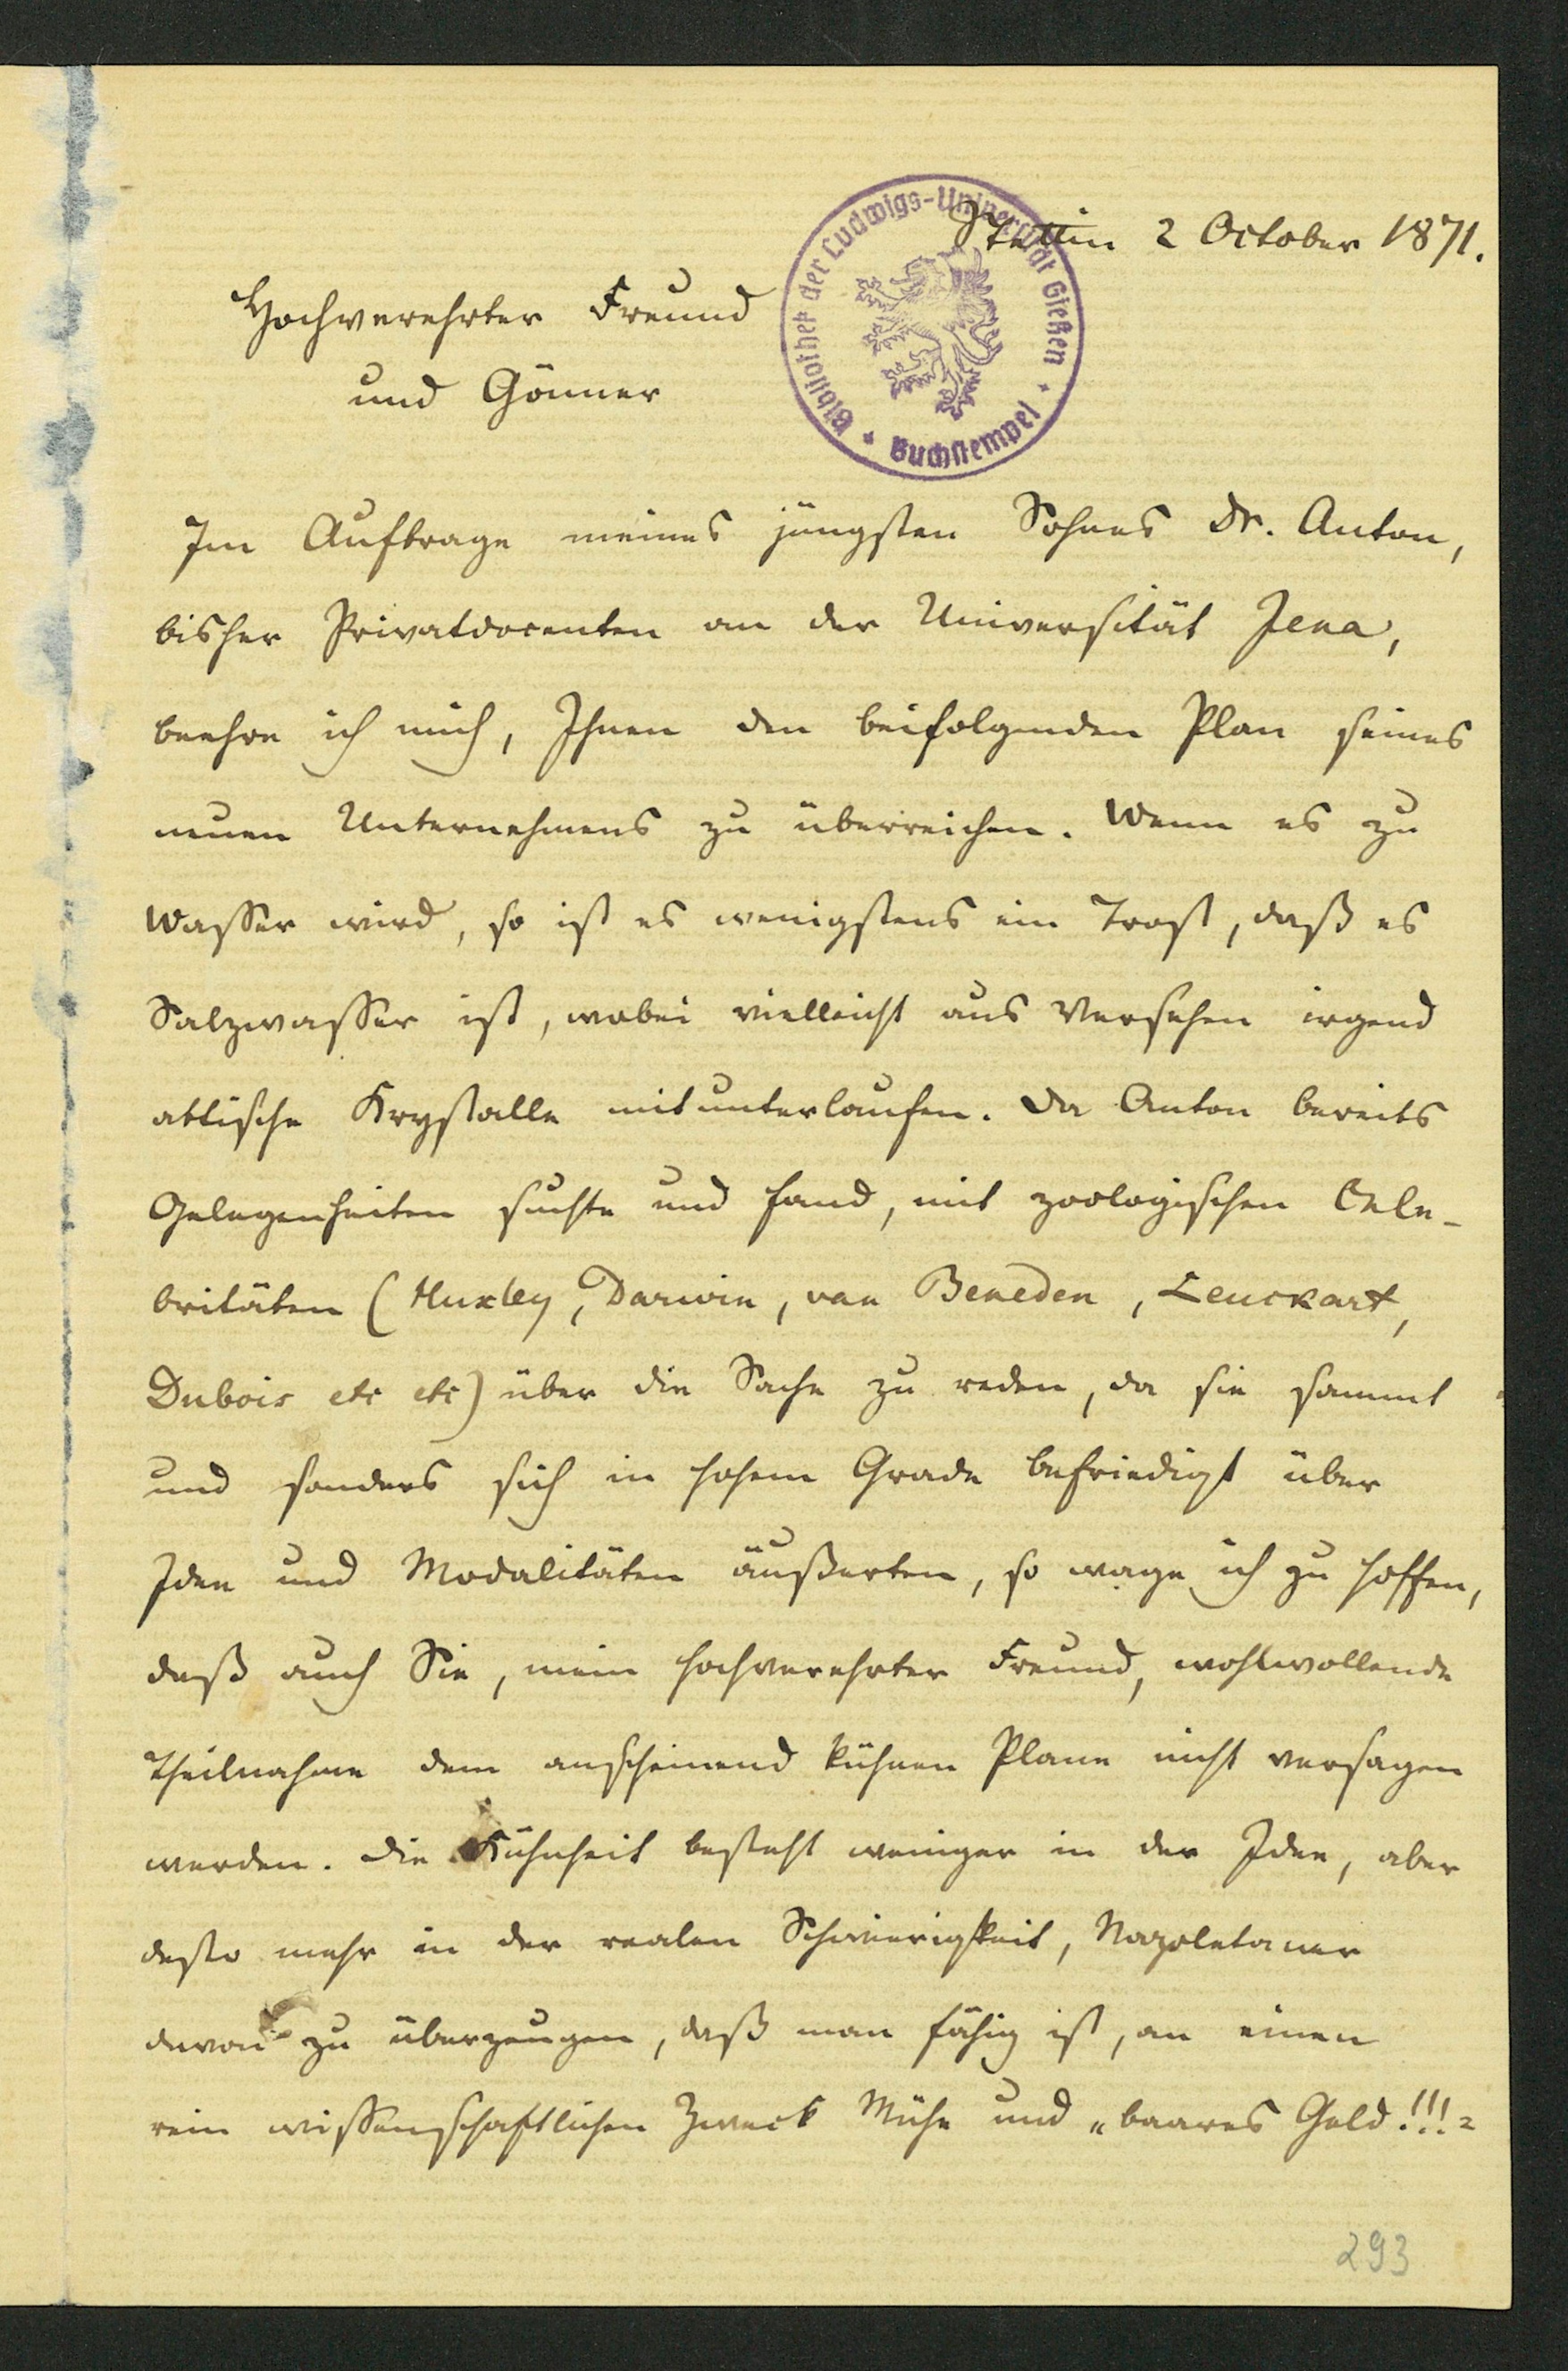 Stettin 2 October 1871.
Bibliothek der Ludwigs-Universität Gießen
Buchstempel
Hochverehrter Freund
und Gönner
Im Auftrage meines jüngsten Sohnes Dr. Anton,
bisher Privatdocenten an der Universität Jena,
beehre ich mich, Ihnen den beifolgenden Plan seines
neuen Unternehmens zu überreichen. Wenn es zu
Wasser wird, so ist es wenigstens ein Trost, daß es
Salzwasser ist, wobei vielleicht aus Versehen irgend
attische Krystalle mitunterlaufen. Da Anton bereits
Gelegenheiten suchte und fand, mit zoologischen Cele-
britäten (Huxley, Darwin, van Beneden, Leuckart,
Dubois etc etc) über die Sache zu reden, da sie sammt
und sonders sich in hohem Grade befriedigt über
Idee und Modalitäten äußerten, so wage ich zu hoffen,
daß auch Sie, mein hochverehrter Freund, wohlwollende
Theilnahme dem anscheinend kühnen Plane nicht versagen
werden. Die Kühnheit besteht weniger in der Idee, aber
desto mehr in der realen Schwierigkeit, Napoletaner
davon zu überzeugen, daß man fähig ist, an einen
rein wissenschaftlichen Zweck Mühe und „baares Geld!!!"
293